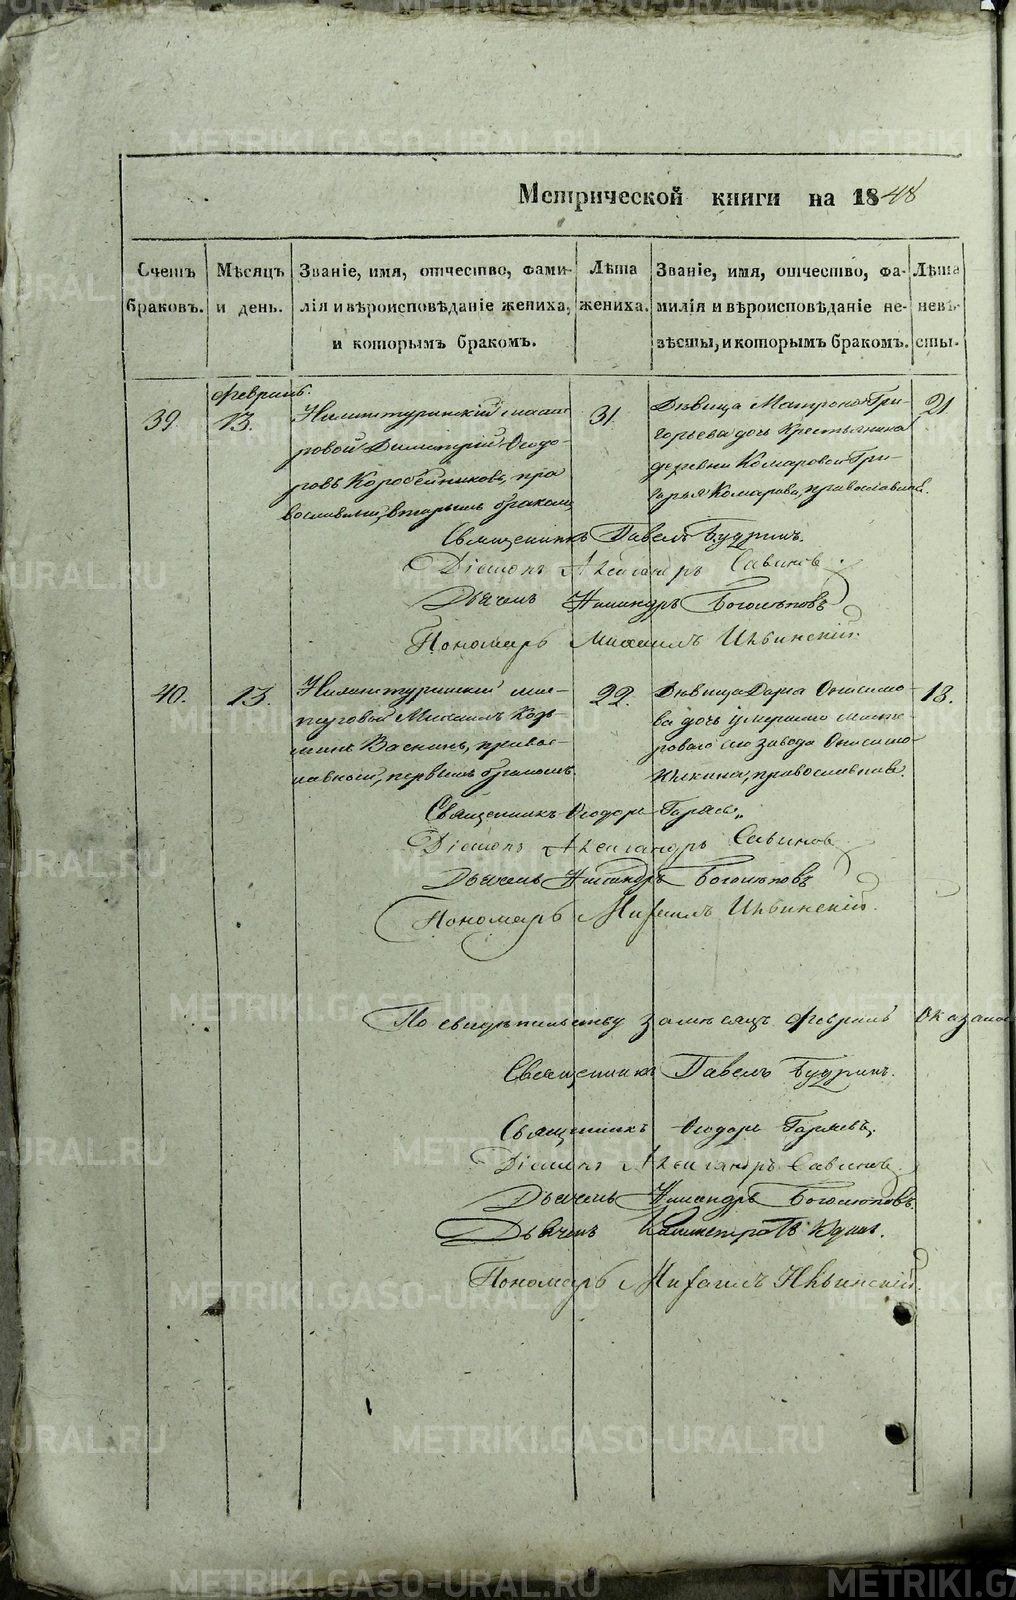 Метрической книги на 1848
Счетъ браковъ.
Мѣсяцъ и день.
Званіе, имя, отчество, фами-
лія и вѣроисповѣданіе жениха,
и которымъ бракомъ.
Лѣта жениха.
Званіе, имя, отчество, фа-
милія и вѣроисповѣданіе не-
вѣсты, и которымъ бракомъ.
Лѣта невѣ-
сты.
февраль.
39.
13.
Нижнетуринскій масте-
ровой Димитрій Ѳеодо-
ровъ Коробейниковъ, пра
вославный, вторымъ бракомъ
31.
Дѣвица Матрона Гри-
горьева дочь Крестьянина
деревни Комаровой Гри-
горья Комарова, православнаѧ.
21
Священникъ Павелъ Будринъ.
Діаконъ Александръ Савиновъ
Дьячекъ Никандръ Боголѣповъ
Пономарь Михаилъ Ивинскій.
40.
13.
Нижнетуринскій мас-
теровой Михаилъ Козь-
минъ Васкинъ, правос-
лавный, первымъ бракомъ.
22.
Дѣвица Дарья Онисимо-
ва дочь умершаго масте-
роваго сего завода Онисима
православнаѧ.
18.
Священникъ Ѳеодоръ Горяевъ
Діаконъ Александръ Савиновъ
Дьячекъ Никандръ Боголѣповъ
Пономарь Михаилъ Ивинскій.
По свидѣтельству за мѣсяцъ февраль оказалос
Священникъ Павелъ Будринъ.
Священникъ Ѳеодоръ Горяевъ,
Діаконъ Александръ Савиновъ
Дьячекъ Никандръ Боголѣповъ.
Дьячекъ Калистратъ Юдинъ.
Пономарь Михаилъ Ивинскій.
METRIKI.GASO-URAL.RU